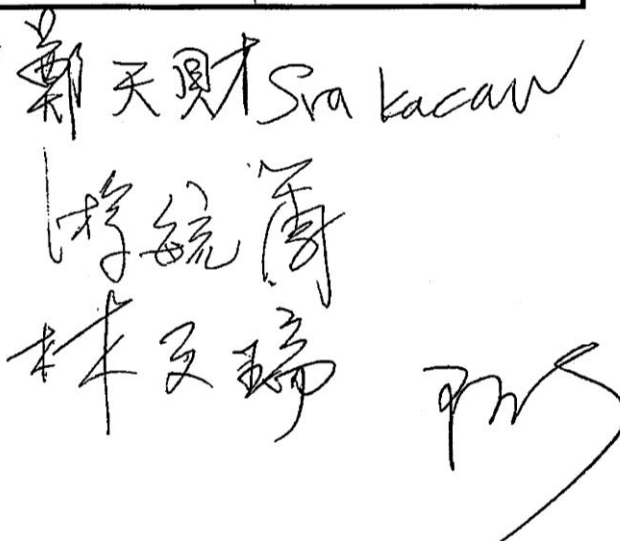 鄭天財Sra Kacaw
游毓蘭
林文瑞